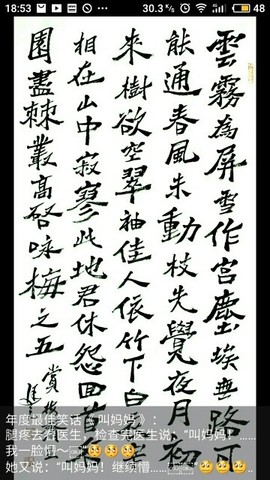 18:53
30.3 K/s
48
雲霧為屏雪作宮塵埃無路可
能通春風未動枝先覺夜月初
來樹欲空翠袖佳人依竹下白
相在山中寂寥此地君休怨回首
園盡棘叢高啓咏梅之五
賞
年度最佳笑话《叫妈妈》：
腿疼去看医生，检查完医生说：“叫妈妈！……
我一脸懵～
她又说：“叫妈妈！继续懵……